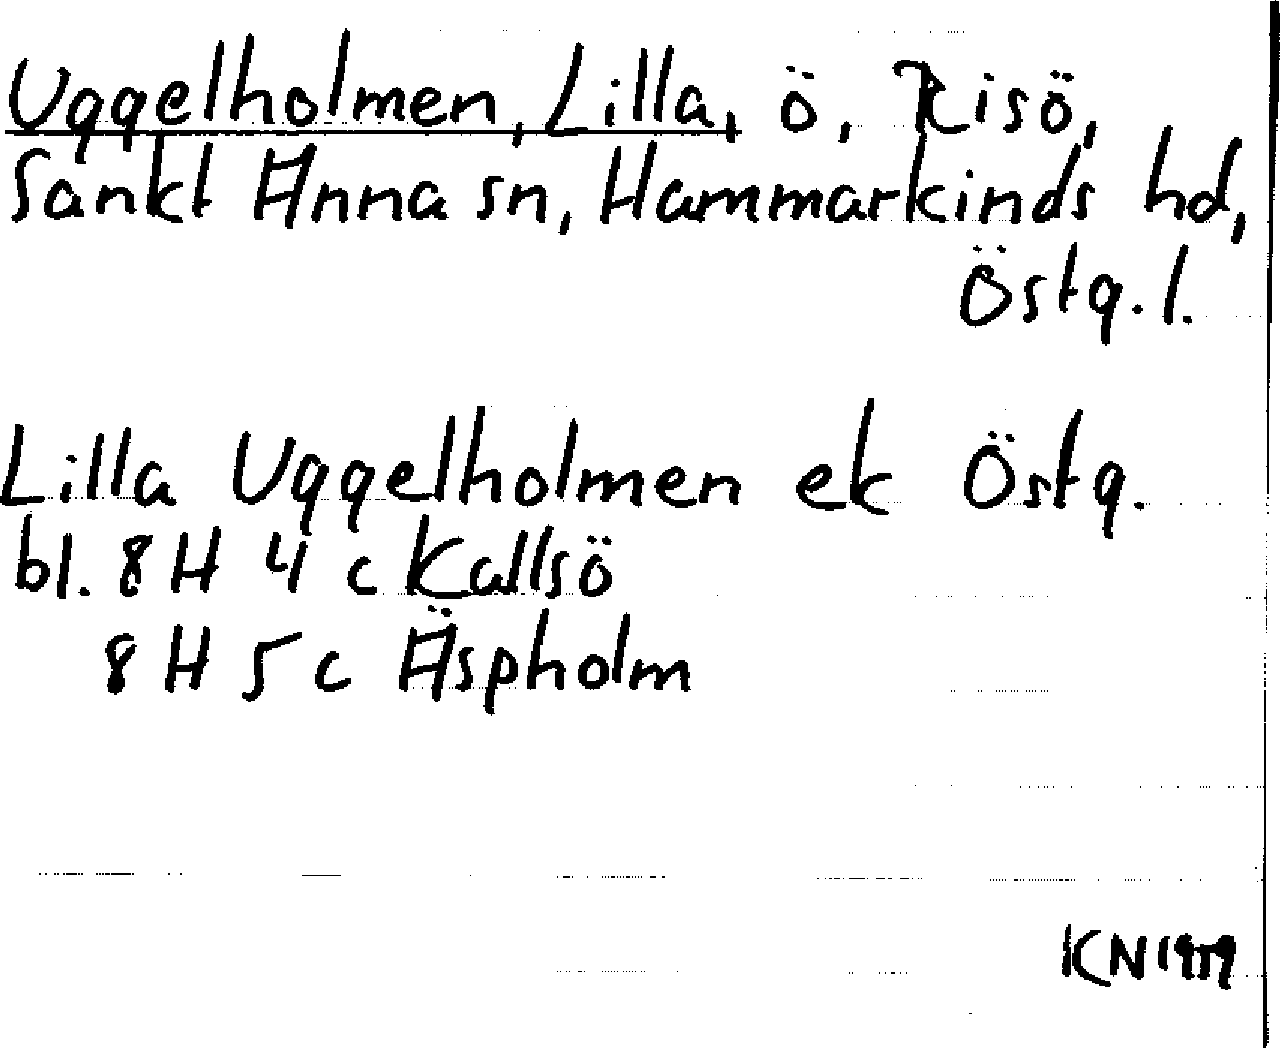 Uggelholmen, Lilla, ö, Risö,
Sankt Anna sn, Hammarkinds hd,
Östg. l.
Lilla Uggelholmen ek Östg.
bl. 8 H 4 c Kallsö
8 H 5 c Äspholm
KN